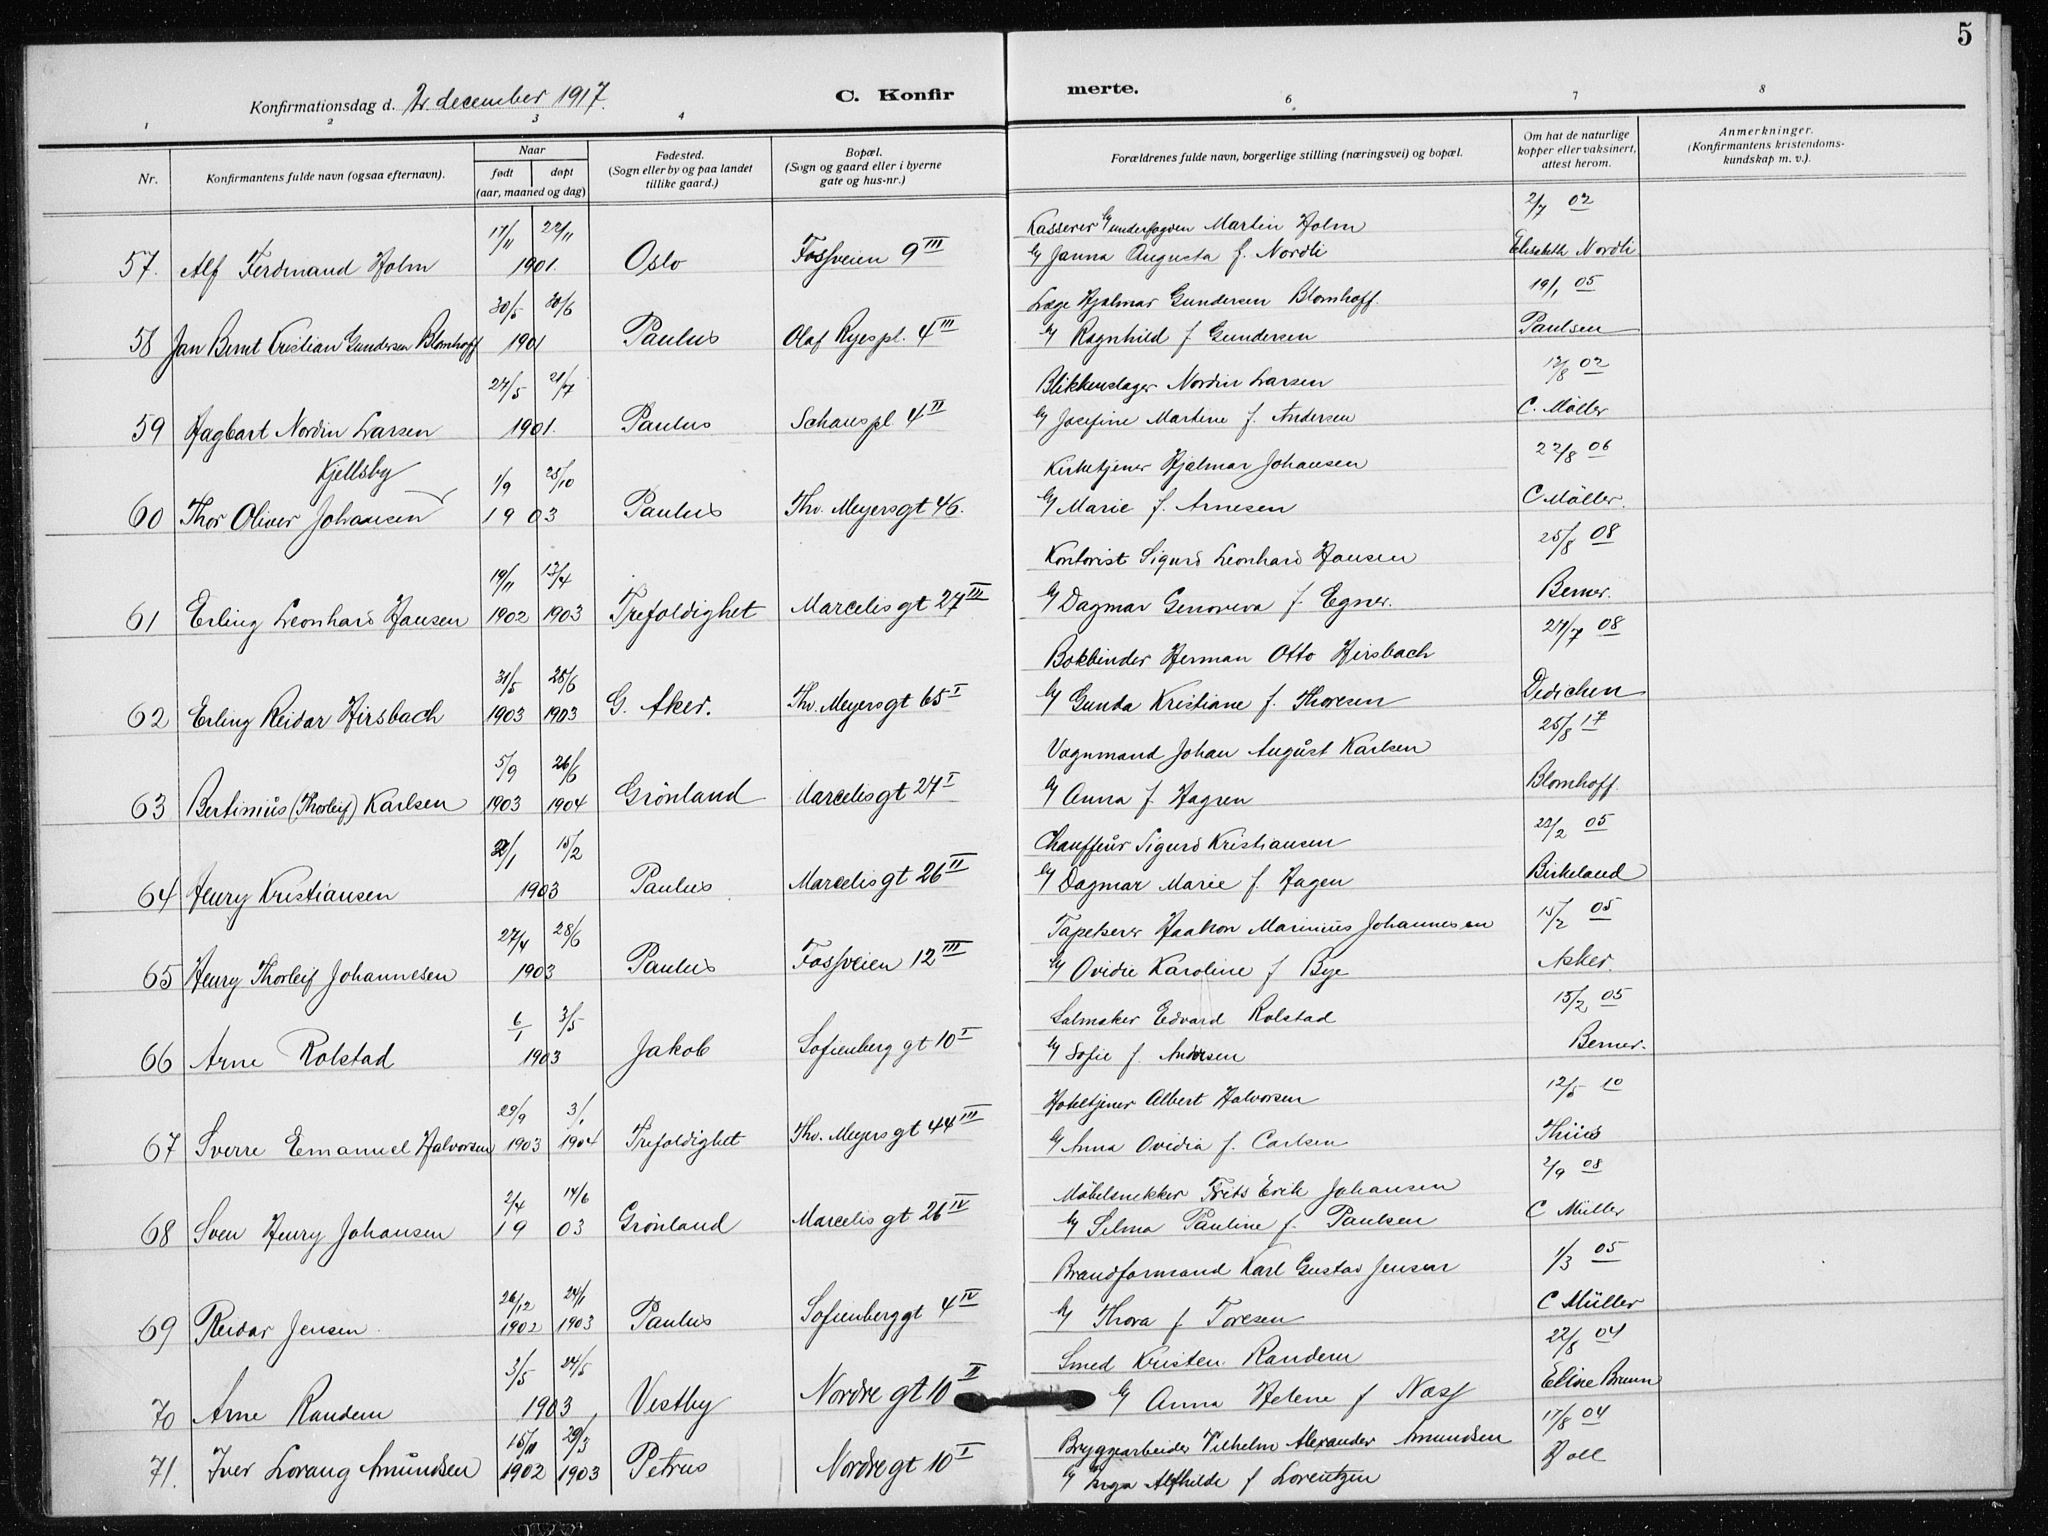 5
Konfirmationsdag d. 2. december 1917.
C. Konfirmerte.
1 2 3 4 6 7 8
Nr.
Konfirmantens fulde navn (ogsaa efternavn).
Naar
født døpt
(aar, maaned og dag)
Fødested.
(Sogn eller by og paa landet
tillike gaard.)
Bopæl.
(Sogn og gaard eller i byerne
gate og hus-nr.)
Forældrenes fulde navn, borgerlige stilling (næringsvei) og bopæl.
Om hat de naturlige
kopper eller vaksinert,
attest herom.
Anmerkninger.
(Konfirmantens kristendoms-
kundskap m. v.)
17/11 22/11 Kasserer Martin Holm 2/7 02
57. Alf Ferdinand Holm 1901. Oslo Fossveien 9 III Janna Augusta f. Nordli Elisabeth Nordli
30/5 30/6 Læge Hjalmar Gundersen Blomhoff. 19/1 05
58 Jan Bernt Kristian Gundersen Blomhoff 1901 Paulus Olaf Ryespl. 4 III Ragnhild f Gundersen Paulsen
27/5 21/7 Blikkenslager Nordin Larsen 13/8 02
59 Hagbart Nordin Larsen 1901. Paulus Schouspl. 4 II Josefine Martene f. Andersen C. Möller
Kjellsby 1/9 25/10 Kirketjener Hjalmar Johansen 22/8 06
60 Thor Oliver Johansen 1903 Paulus Thv. Meyersgt 46. Marie f. Arnesen C Möller.
19/11 13/4 Kontorist Sigurd Leonhard Hansen 25/8 08
61 Erling Leonhard Hansen 1902 1903 Trefoldighet Marcelisgt 27 III Dagmar Genoveva f. Egner. Berner.
31/5 28/6 Bokbinder Herman Otto Hirsbach 27/7 08
62 Erling Reidar Hirsbach 1903 1903 G. Aker. Thv. Meyersgt 65 I Gunda Kristiane f. Thoresen Dedichen
5/9 26/6 Vognmand Johan August Karlsen 25/8 17
63 Bertinius (Thorleif) Karlsen 1903 1904 Grönland Marcelisgt 27 I Anna f. Hagren Blomhoff.
15/2 Chauffeur Sigurd Kristiansen 05
64 Henry Kristiansen 1903 Paulus Marcelisgt 26 II Dagmar Marie f. Hagen Birkeland
27/4 28/6 Tapetserer Haakon Marinius Johannesen 15/2 05
65 Henry Thorleif Johannesen 1903 Paulus Fossveien 12 III Ovidie Karoline f Bye Asker.
6/1 3/5 Salmaker Edvard Rolstad 15/2 05
66 Arne Rolstad 1903 Jakob Sofienberg gt 10 I Sofie f. Andersen Berner.
29/9 3/1 Hoteltjener Albert Halvorsen 12/5 10
67 Sverre Emanuel Halvorsen 1903 1904 Trefoldighet Thv. Meyersgt 44 III Anna Ovidia f. Carlsen Thiis
2/4 14/6 Møbelsnekker Frits Erik Johansen 2/9 08
68 Sven Henry Johansen 1903 Grönland Marcelisgt 26 IV Selma Pauline f. Paulsen C Müller
26/12 24/1 Brandformand Karl Gustav Jensen 1/3 05
69 Reidar Jensen 1902 1903 Paulus Sofienberggt 4 IV Thora f Toresen C Müller
3/5 24/5 Smed Kristen Randem 22/8 04
70 Arne Randem 1903 Vestby Nordre gt 10 II Anna Helene f Næss Eline Bruun
15/11 29/3 Bryggearbeider Vilhelm Alexander Amundsen 17/8 04
71. Iver Lorang Amundsen 1902 1903 Petrus Nordregt 10 I Inga Alfhilde f Lorentzen Holl